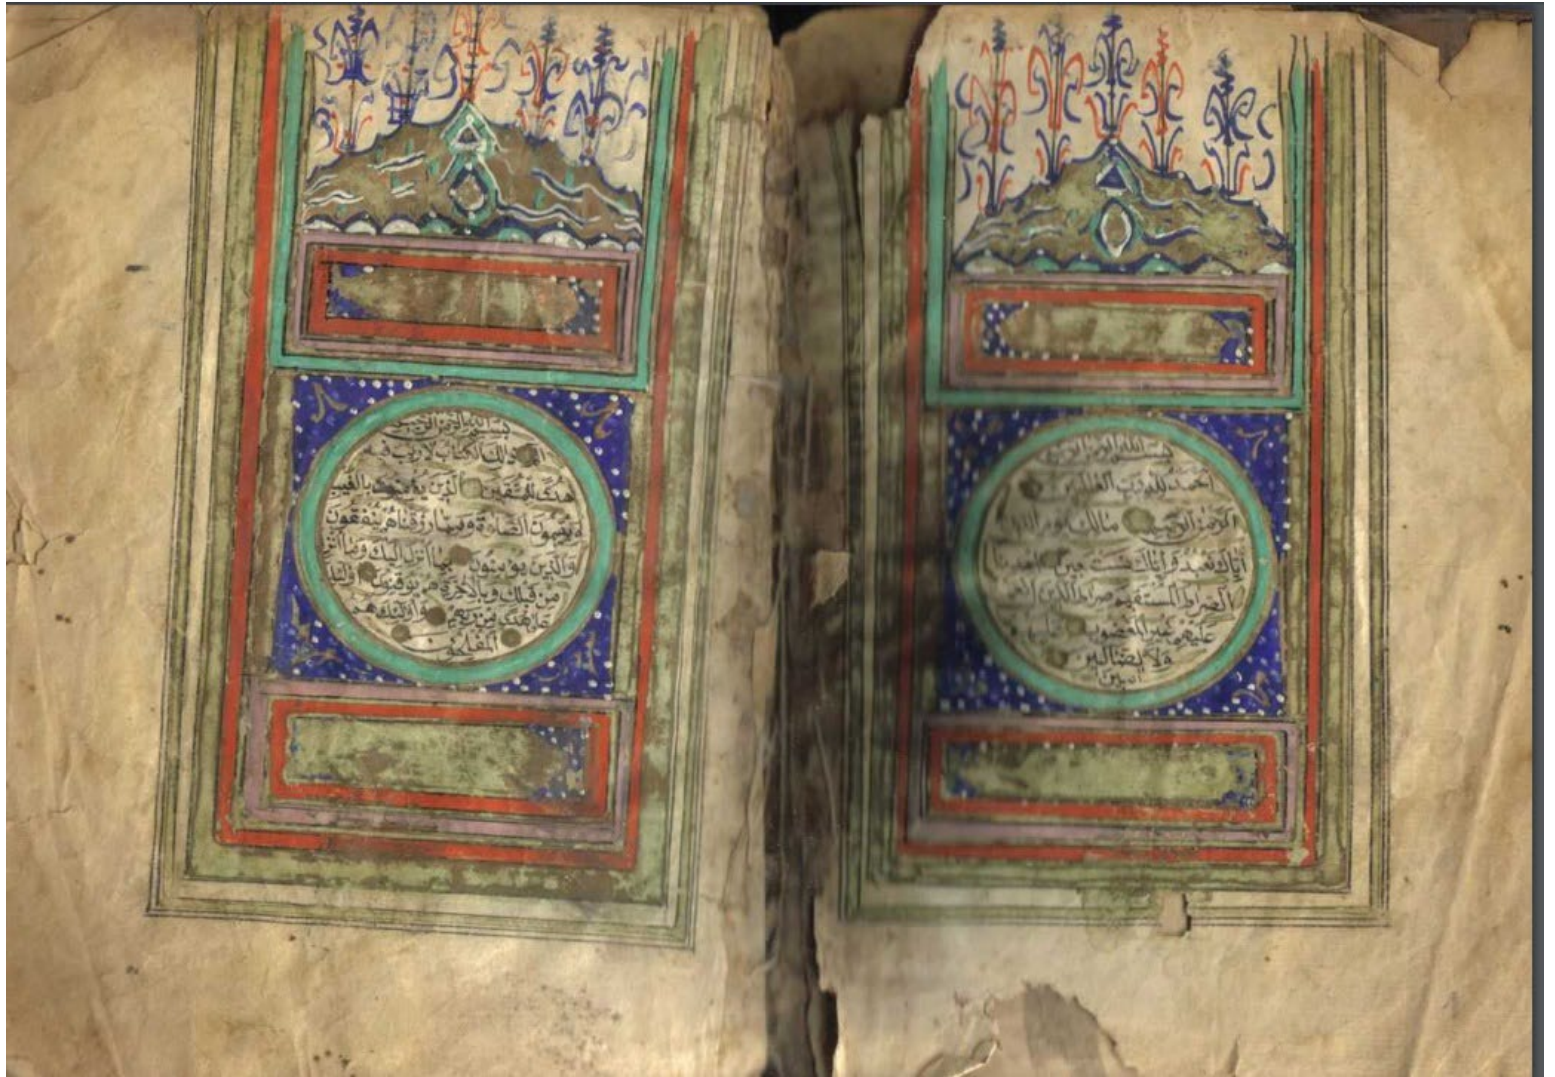 بسم الله الرحمن الرحيم
الحمد لله رب العالمين
الرحمن الرحيم مالك يوم الدين
اياك نعبد و اياك نستعين اهدنا
الصراط المستقيم صراط الذين
عليهم غير المغضوب
ولا الضالين
امين
بسم الله الرحمن الرحيم
الم ذلك الكتاب لا ريب فيه
هدى للمتقين الذين يؤمنون بالغيب
ويقيمون الصلوة ومما رزقناهم ينفقون
والذين يؤمنون بما انزل اليك وما انزل
من قبلك وبالاخرة هم يوقنون اولئك
على هدى من ربهم و اولئك هم
المفلحون